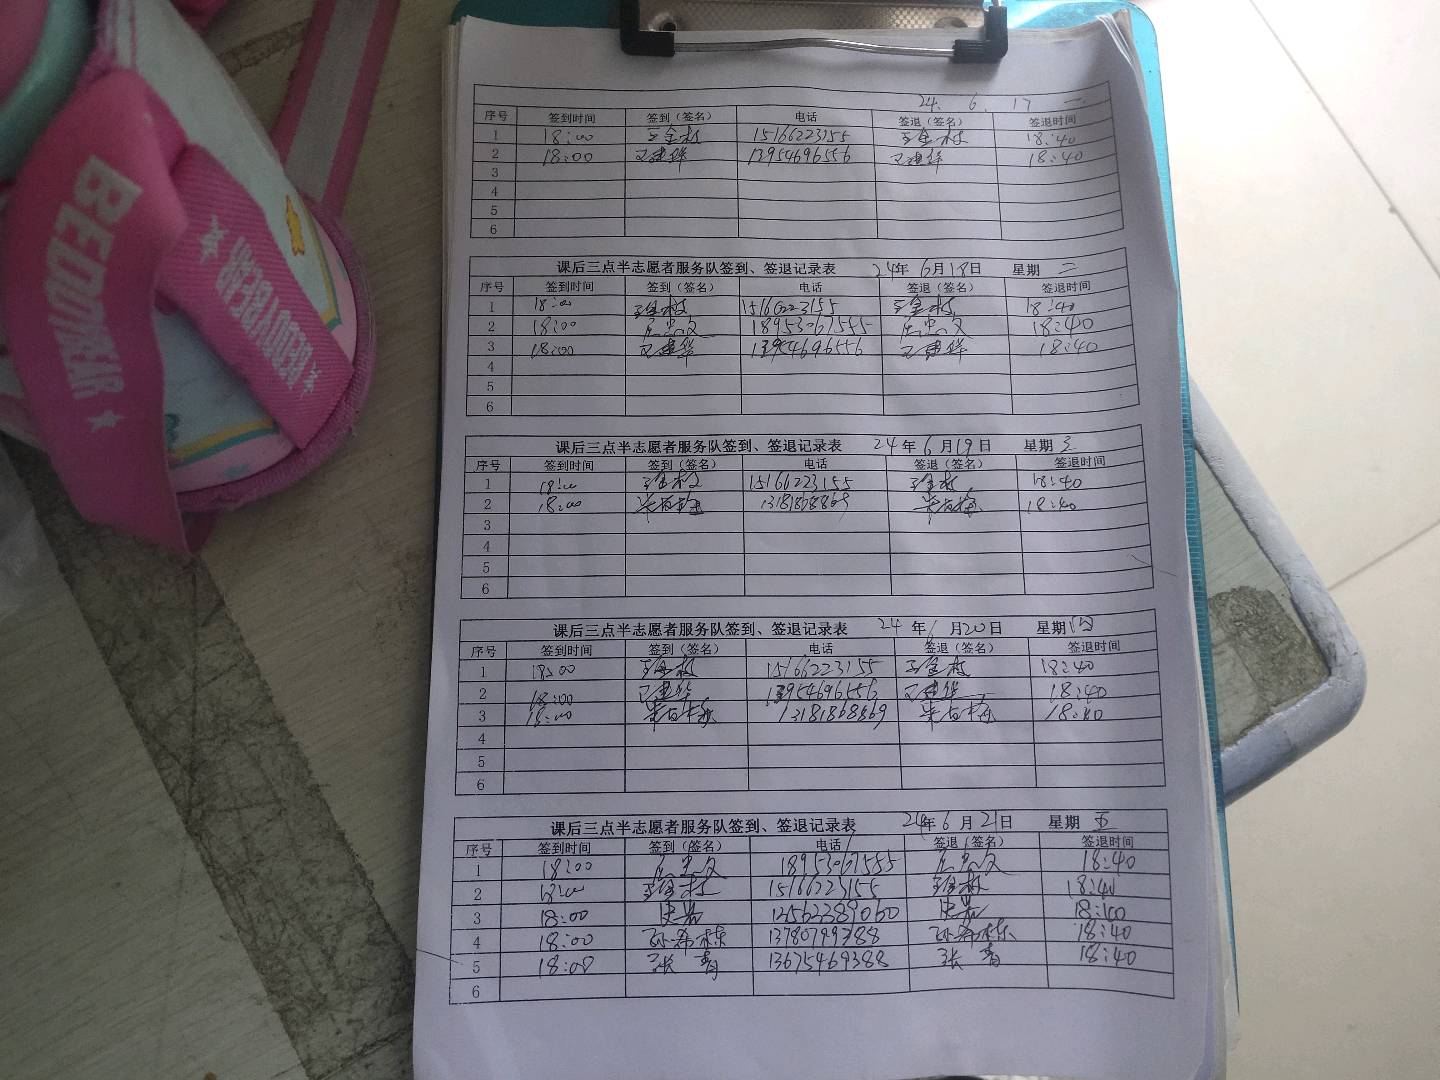 BEDDYBEAR
BEDDYBEAR
24. 6. 17 一
序号 签到时间 签到（签名） 电话 签退（签名） 签退时间
1 18:00 王金枝 15166223155 王金枝 18:40
2 18:00 王建华 13954696556 王建华 18:40
3
4
5
6
课后三点半志愿者服务队签到、签退记录表 24年 6月18日 星期 二
序号 签到时间 签到（签名） 电话 签退（签名） 签退时间
1 18:00 王金枝 15166223155 王金枝 18:40
2 18:00 18953067555 18:40
3 18:00 王建华 13954696556 王建华 18:40
4
5
6
课后三点半志愿者服务队签到、签退记录表 24 年 6 月 19 日 星期 三
序号 签到时间 签到（签名） 电话 签退（签名） 签退时间
1 18:00 王金枝 15166223155 王金枝 18:40
2 18:00 13181868869 18:40
3
4
5
6
课后三点半志愿者服务队签到、签退记录表 24 年 6 月20日 星期 四
序号 签到时间 签到（签名） 电话 签退（签名） 签退时间
1 18:00 王金枝 15166223155 王金枝 18:40
2 18:00 王建华 13954696556 王建华 18:40
3 18:00 13181868869 18:40
4
5
6
课后三点半志愿者服务队签到、签退记录表 24年 6 月 21日 星期 五
序号 签到时间 签到（签名） 电话 签退（签名） 签退时间
1 18:00 18953067555 18:40
2 18:00 王金枝 15166223155 王金枝 18:40
3 18:00 12562389060
4 18:00 孙希栋 13780799388 孙希栋 18:40
5 18:00 张青 13675469388 张青 18:40
6